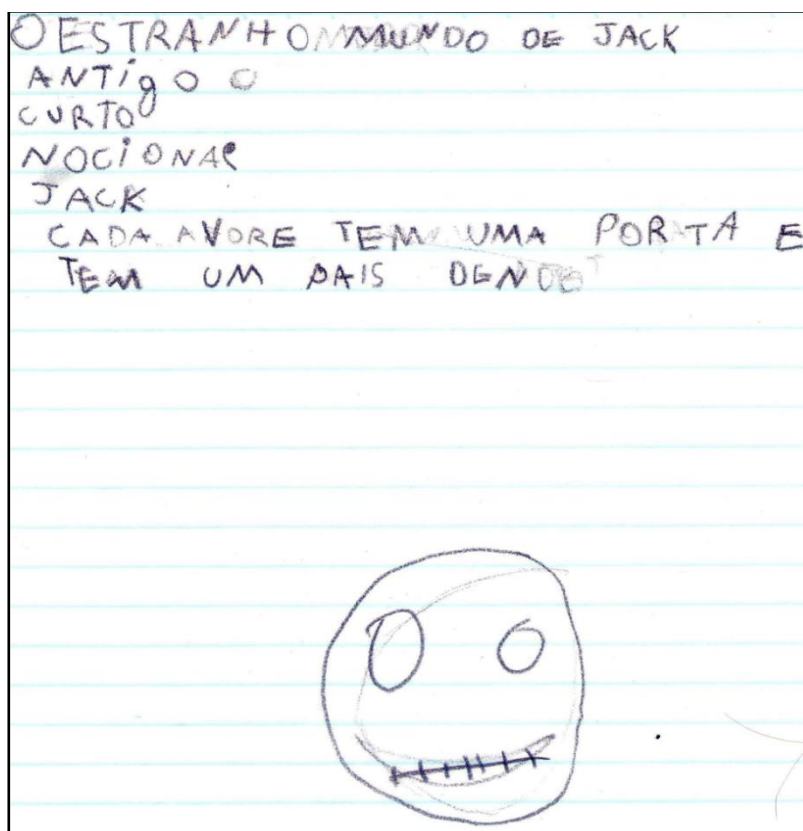 O ESTRANHO MUNDO DE JACK
ANTigO
CURTO
NOCIONAL
JACK
CADA AVORE TEM UMA PORTA E
TEM UM PAIS DENDE